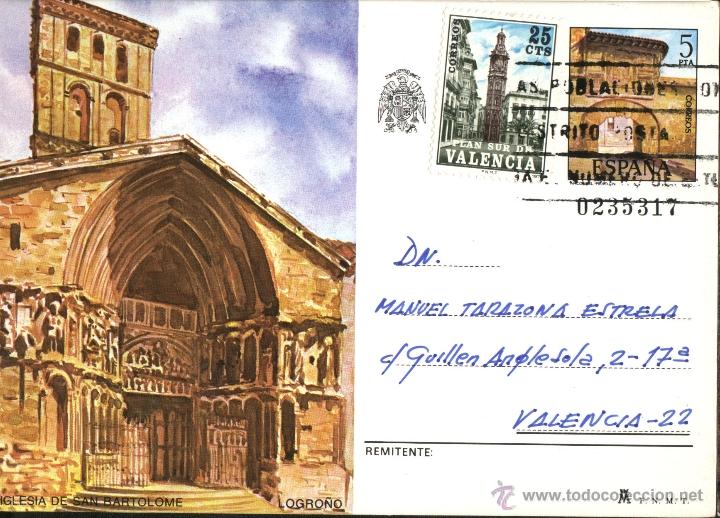 CORREOS
25
CTS
PLAN SUR DE
VALENCIA
F.N.M.T.
5
PTA
CORREOS
ESPAÑA
POBLACIONES
0235317
DN.
MANUEL TARAZONA ESTRELA
c/ Guillen Anglesola, 2-17ª
VALENCIA-22
REMITENTE:
IGLESIA DE SAN BARTOLOME
LOGROÑO
F. N. M. T.
© todocoleccion.net